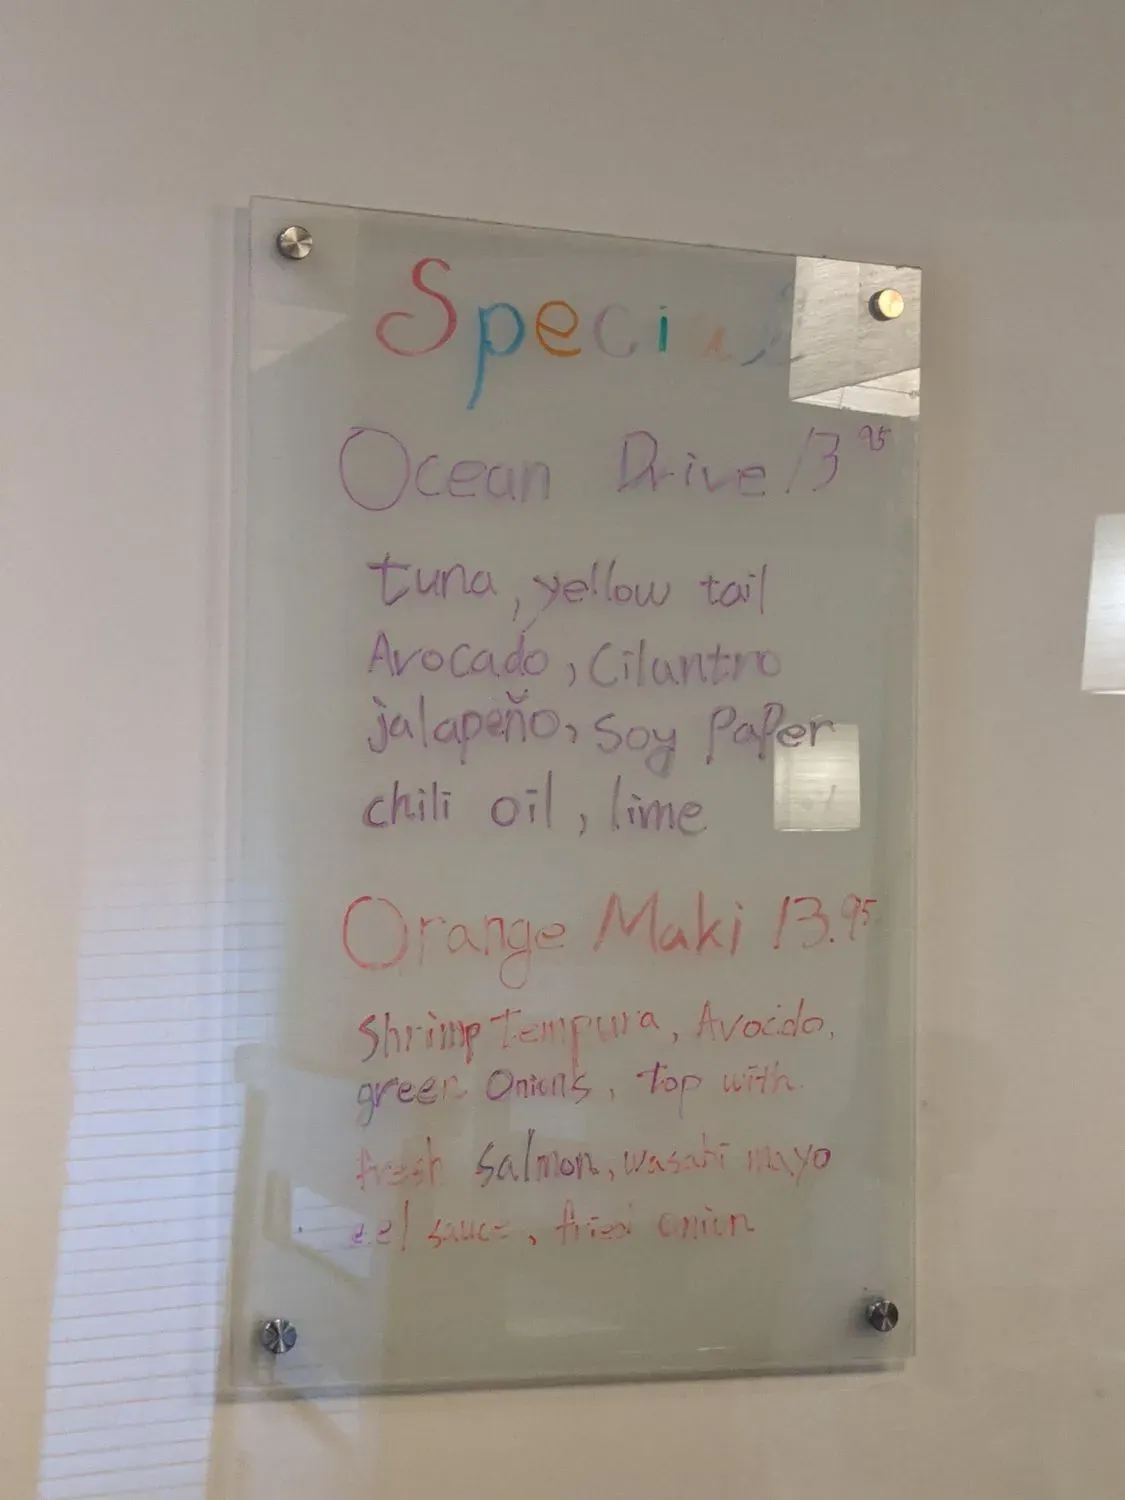 Specials
Ocean Drive 13 95
tuna, yellow tail
Avocado, Cilantro
jalapeño, Soy PaPer
chili oil, lime
Orange Maki 13.95
Shrimp Tempura, Avocado,
green Onions, top with
fresh Salmon, wasabi mayo
eel sauce, fried onion